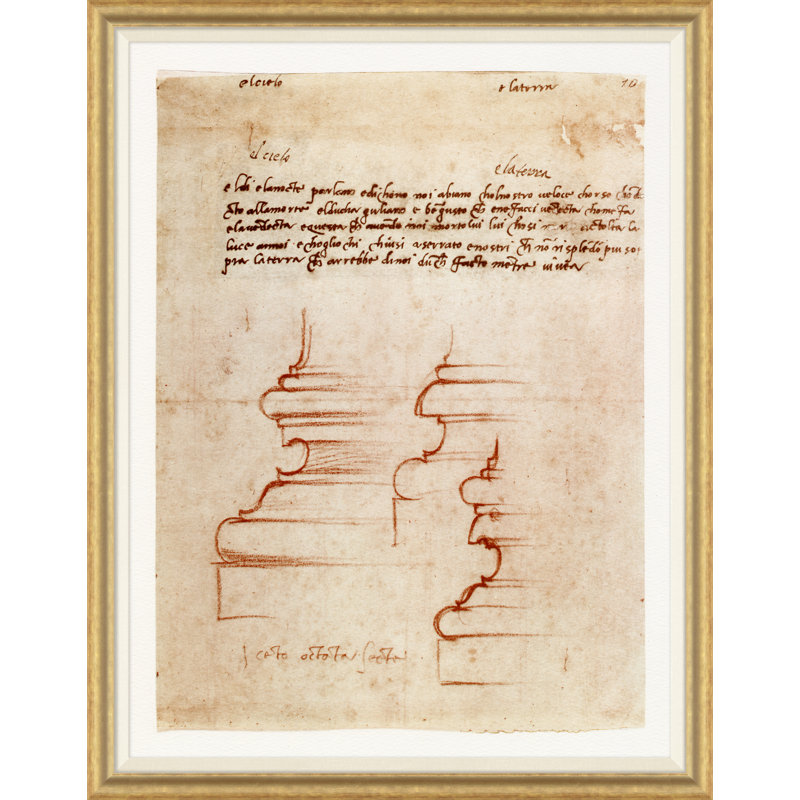 el cielo e la terra 10
el cielo e la terra
el di e la nocte parlano e dichono noi abiano chol nostro veloce chorso chondo
cto alla morte el ducha guliano e be giusto ch e ne facci vedecta chome fa
e la vendecta e questa ch avendo noi morto lui lui chosi a tolta la
luce a noi e chogli ochi chiusi a serrato e nostri ch no risplendo piu so
pra la terra ch arrebbe di noi dunch facto mentre vivea
cento octota secte